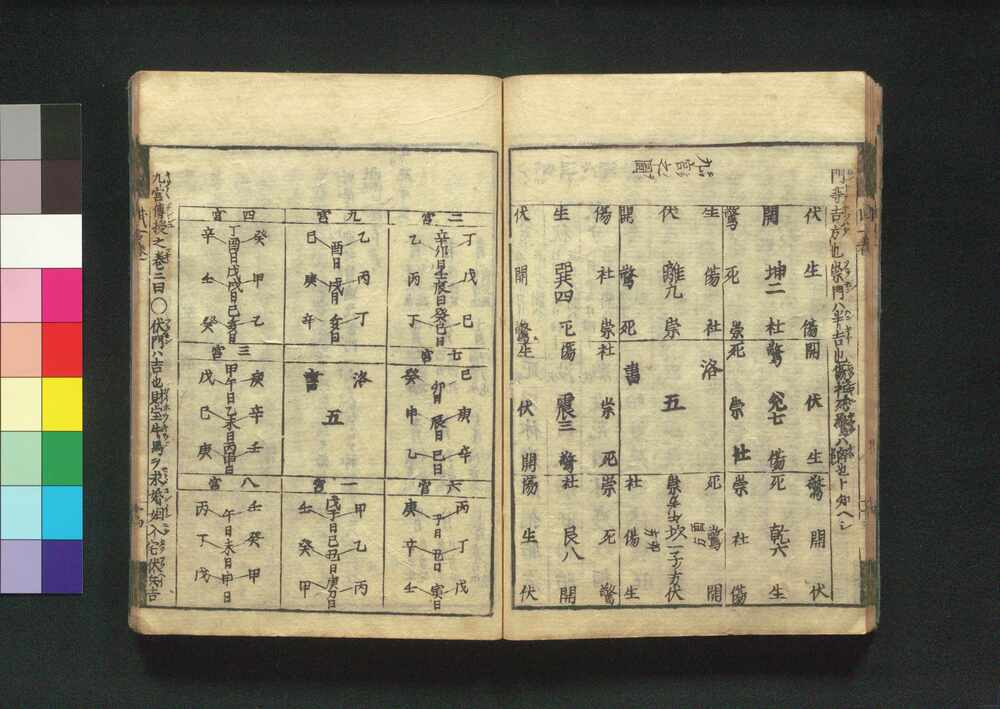 門等吉方也
九宮之圖
伏 生 傷
開 坤二 社
驚 死 祟
生 傷 社
伏 離九 祟
開 驚 死
傷 社 祟
生 巽四 死
伏 開 驚
開 伏 生
驚 兌七 傷
死 祟 社
洛
五
書
社 祟 死
傷 震三 驚
生 伏 開
驚 開 伏
死 乾六 生
祟 社 傷
死 驚 開
坎一
伏
社 傷 生
祟 死 驚
社 艮八 開
傷 生 伏
二宮
丁 戊 己
辛卯日 壬辰日 癸巳日
乙 丙 丁
九宮
乙 丙 丁
酉日 戌日 亥日
己 庚 辛
四宮
癸 甲 乙
丁酉日 戊戌日 己亥日
辛 壬 癸
七宮
己 庚 辛
卯日 辰日 巳日
癸 甲 乙
洛
五
書
三宮
庚 辛 壬
甲午日 乙未日 丙申日
戊 己 庚
六宮
丙 丁 戊
子日 丑日 寅日
庚 辛 壬
一宮
甲 乙 丙
戊子日 己丑日 庚寅日
壬 癸 甲
八宮
壬 癸 甲
午日 未日 申日
丙 丁 戊
九宮傳授之卷三曰〇伏門ハ吉也財宝牛馬ヲ求婚姻